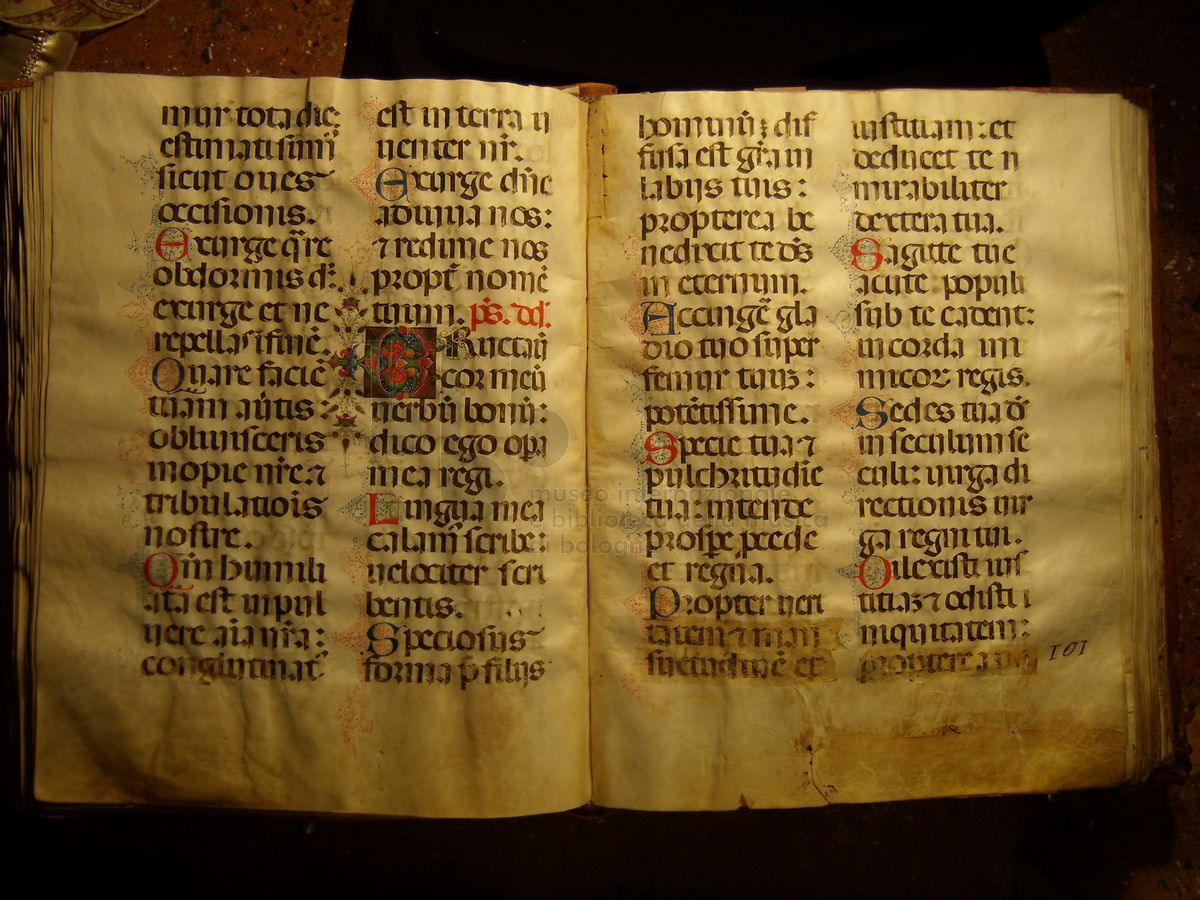 mur tota die:
estimati sumꝰ
sicut oues
occisionis.
Exurge q̄re
obdormis dn̄:
exurge et ne
repellas ī finē.
Quare faciē
tuam aūtis:
obliuisceris
inopie nr̄e ⁊
tribulatiōis
nostre.
Qm̄ humili
ata est in pul
uere aīa nr̄a:
conglutinatꝰ
est in terra u
uenter nr̄.
Exurge dn̄e
adiuua nos:
⁊ redime nos
propt̄ nomē
tuum. ps̄. dd̄.
ERuctauı̄
cor meū
uerbū bonū:
dico ego opa
mea regi.
Lingua mea
calamꝰ scribe:
uelociter scri
bentis.
Speciosus
forma p̄ filijs
hominū: dif
fusa est gr̄a in
labijs tuis:
propterea be
nedixit te ds̄
in eternum.
Accingē gla
dio tuo super
femur tuū:
potētissime.
Specie tua ⁊
pulchritudīe
tua: intende
prospe pcede
et regna.
Propter ueri
tatem ⁊ man
suetudinē et
iustitiam: et
deducet te n
mirabiliter
dextera tua.
Sagitte tue
acute populi
sub te cadent:
in corda ini
micoꝝ regis.
Sedes tua ds̄
in seculum se
culi: uirga di
rectionis uir
ga regni tui.
Dilexisti ius
titiaꝫ ⁊ odisti i
iniquitatem:
propterea
101
museo internazionale
e biblioteca della musica
di bologna